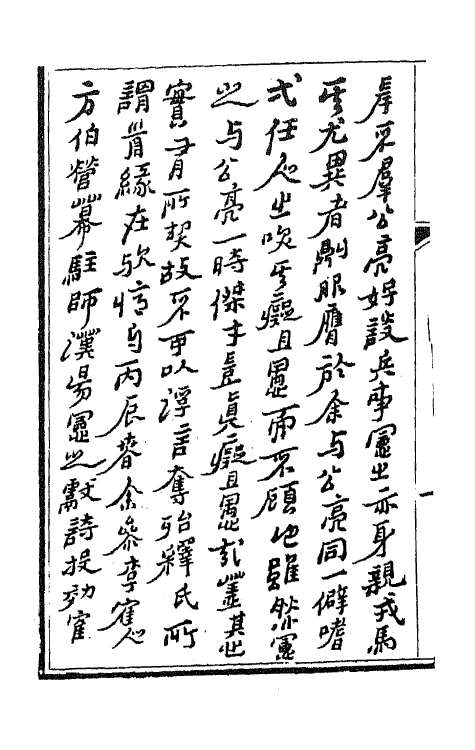 岸不羣公亮好談兵事靈之亦身親戎馬
其尤異者劇服膺於余与公亮同一僻嗜
弌任人之笑其癡且愚而不顧也雖然靈
之与公亮一時傑才豈真癡且愚哉蓋其
實有所契故不可以浮言奪殆釋氏所
謂胥緣在歟憶自丙辰春余參李隺人
方伯營幕駐師漢陽靈之獻詩投効隺